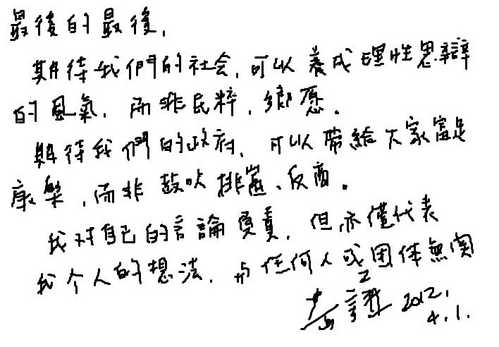 最後的最後,
期待我們的社会,可以養成理性思辯
的風氣,而非民粹,鄉愿。
期待我們的政府,可以帶給大家富足
康樂,而非鼓吹排崑、反商。
我对自己的言論負責,但亦僅代表
我个人的想法,与任何人或团体無関
2012.
4.1.